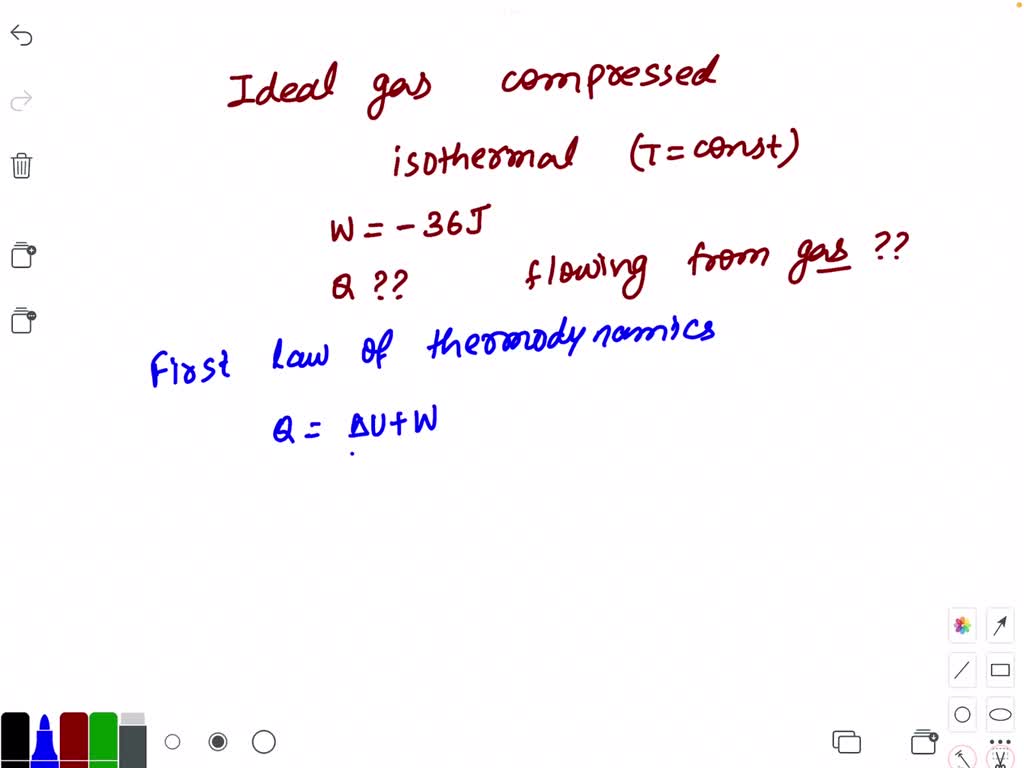 Ideal gas compressed
isothermal (T = const)
W = - 36J
Q ?? flowing from gas ??
First law of thermodynamics
Q = ΔU + W